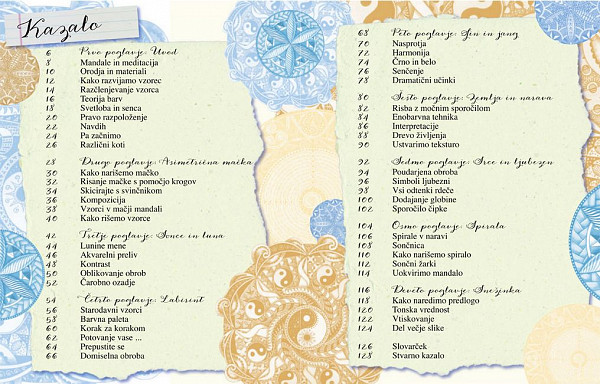 Kazalo
6 Prvo poglavje: Uvod
8 Mandale in meditacija
10 Orodja in materiali
12 Kako razvijamo vzorec
14 Razčlenjevanje vzorca
16 Teorija barv
18 Svetloba in senca
20 Pravo razpoloženje
22 Navdih
24 Pa začnimo
26 Različni koti
28 Drugo poglavje: Asimetrična mačka
30 Kako narišemo mačko
32 Risanje mačke s pomočjo krogov
34 Skicirajte s svinčnikom
36 Kompozicija
38 Vzorci v mačji mandali
40 Kako rišemo vzorce
42 Tretje poglavje: Sonce in luna
44 Lunine mene
46 Akvarelni preliv
48 Kontrast
50 Oblikovanje obrob
52 Čarobno ozadje
54 Četrto poglavje: Labirint
56 Starodavni vzorci
58 Barvna paleta
60 Korak za korakom
62 Potovanje vase ...
64 Prepustite se
66 Domiselna obroba
68 Peto poglavje: Jin in jang
70 Nasprotja
72 Harmonija
74 Črno in belo
76 Senčenje
78 Dramatični učinki
80 Šesto poglavje: Zemlja in narava
82 Risba z močnim sporočilom
84 Enobarvna tehnika
86 Interpretacije
88 Drevo življenja
90 Ustvarimo teksturo
92 Sedmo poglavje: Srce in ljubezen
94 Poudarjena obroba
96 Simboli ljubezni
98 Vsi odtenki rdeče
100 Dodajanje globine
102 Sporočilo čipke
104 Osmo poglavje: Spirala
106 Spirale v naravi
108 Sončnica
110 Kako narišemo spiralo
112 Sončni žarki
114 Uokvirimo mandalo
116 Deveto poglavje: Snežinka
118 Kako naredimo predlogo
120 Tonska vrednost
122 Vtiskovanje
124 Del večje slike
126 Slovarček
128 Stvarno kazalo